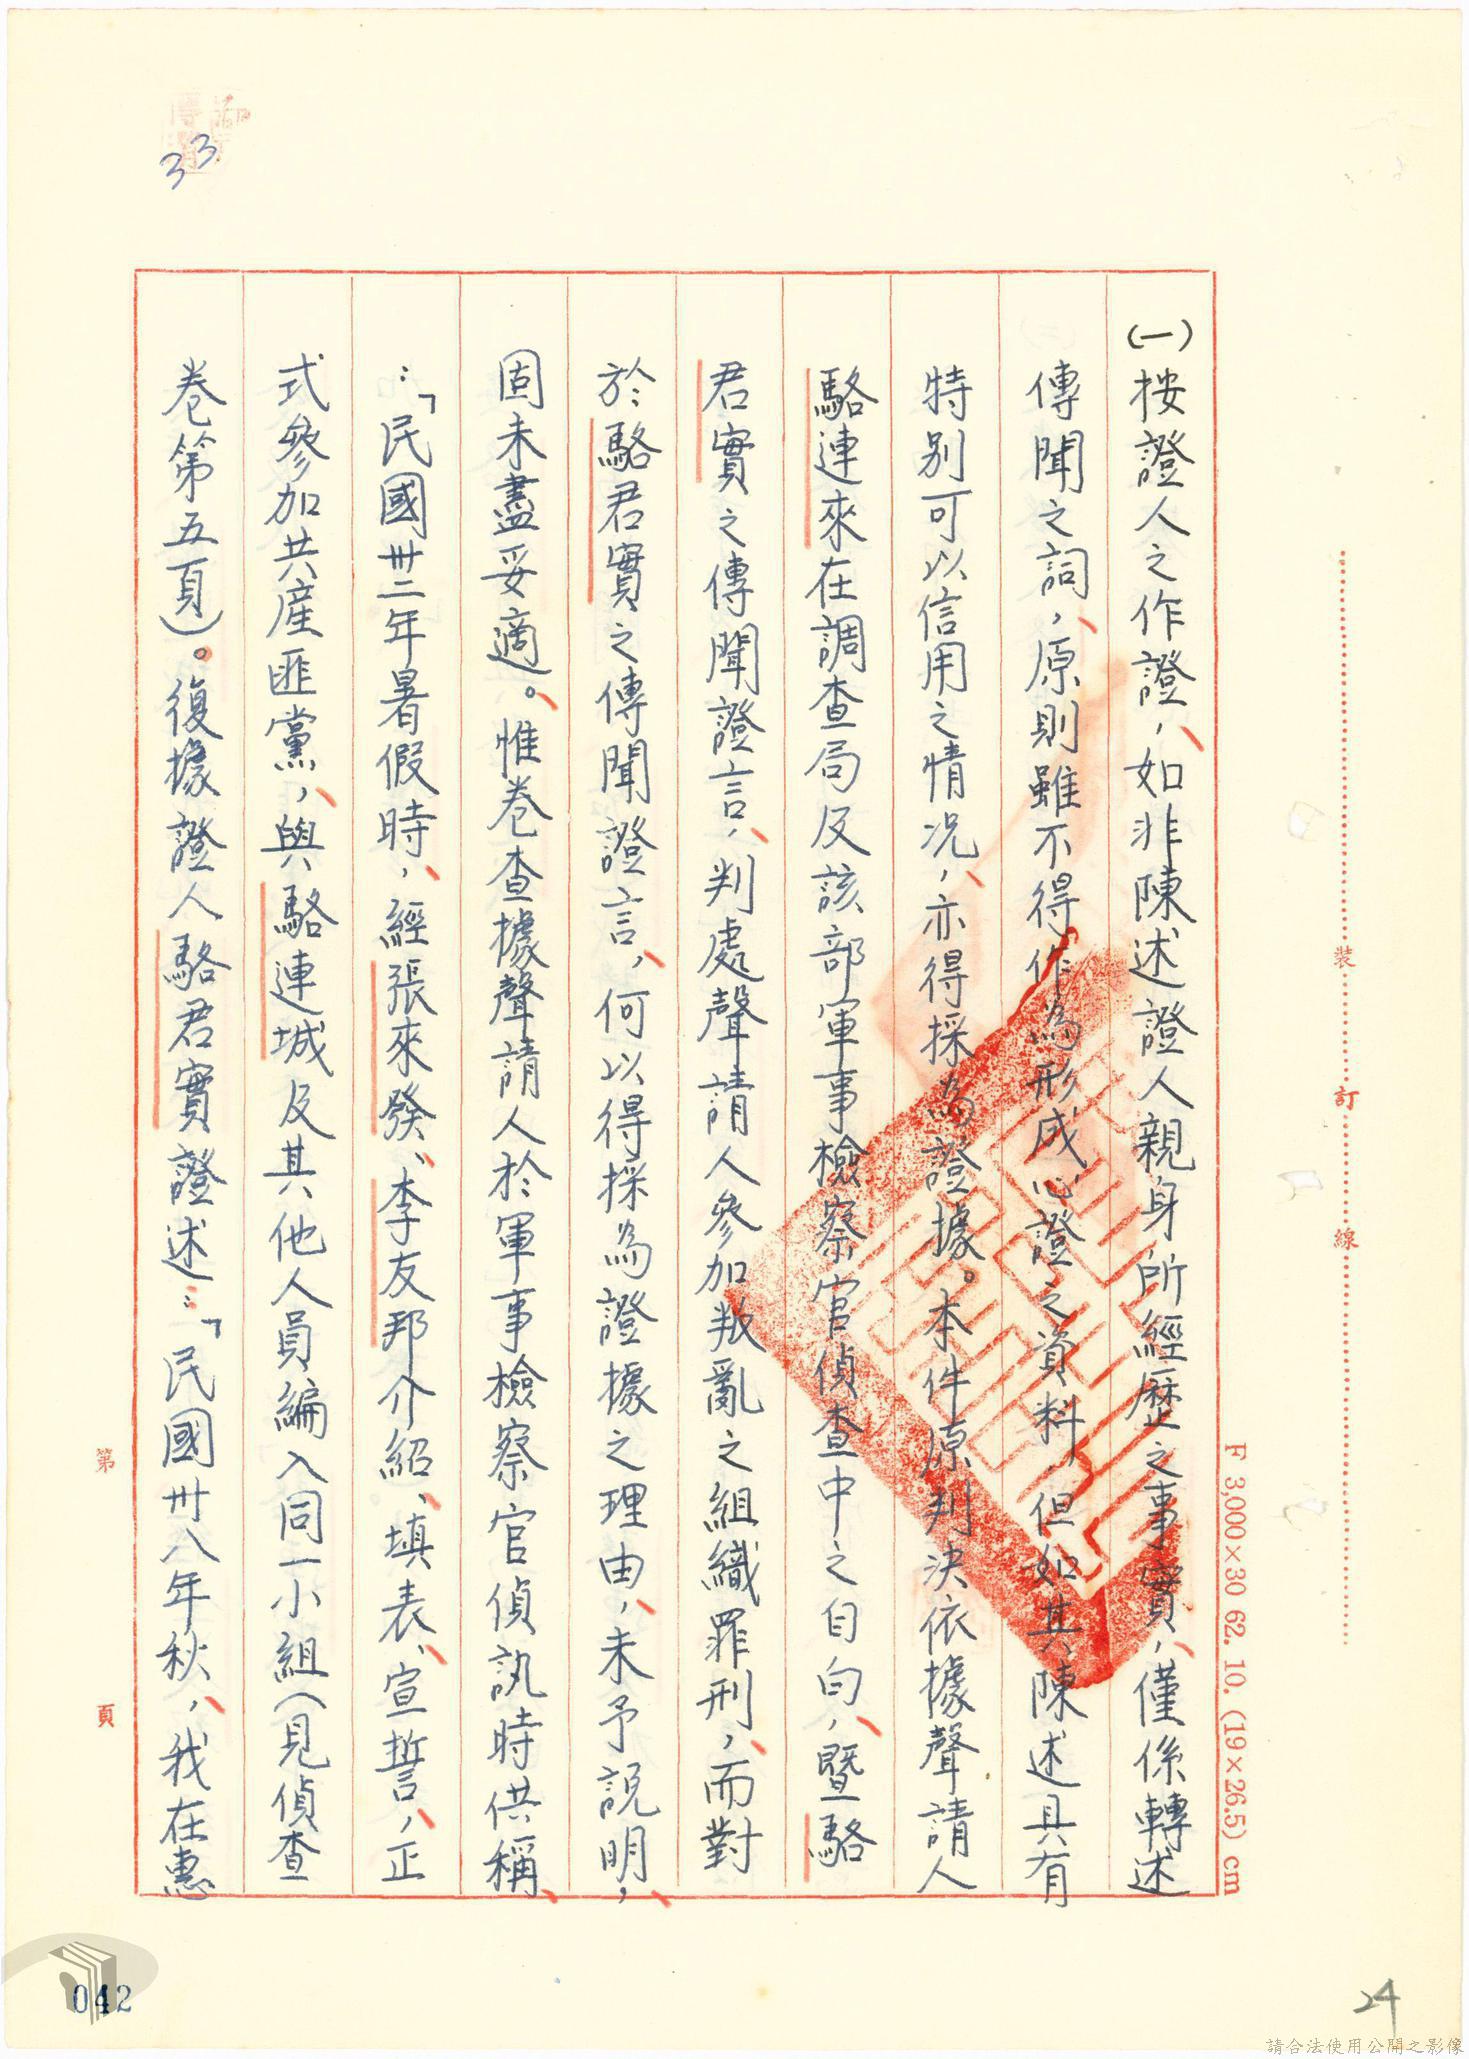 (一)按證人之作證，如非陳述證人親身所經歷之事實，僅係轉述
傳聞之詞，原則雖不得作為形成心證之資料，但如其陳述具有
特別可以信用之情況，亦得採為證據。本件原判決依據聲請人
駱連來在調查局及該部軍事檢察官偵查中之自白，暨駱
君實之傳聞證言，判處聲請人參加叛亂之組織罪刑，而對
於駱君實之傳聞證言，何以得採為證據之理由，未予說明，
固未盡妥適。惟卷查據聲請人於軍事檢察官偵訊時供稱
：「民國卅二年暑假時，經張來發、李友邦介紹、填表、宣誓，正
式參加共產匪黨，與駱連城及其他人員編入同一小組（見偵查
卷第五頁）。復據證人駱君實證述：「民國卅八年秋，我在惠
33
裝
訂
線
F 3,000×30 62. 10. (19×26.5) cm
第
頁
042
24
請合法使用公開之影像